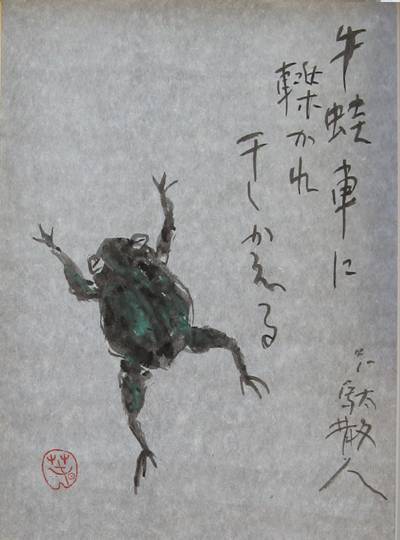 牛蛙車に
轢かれ
干しかえる
駄散人